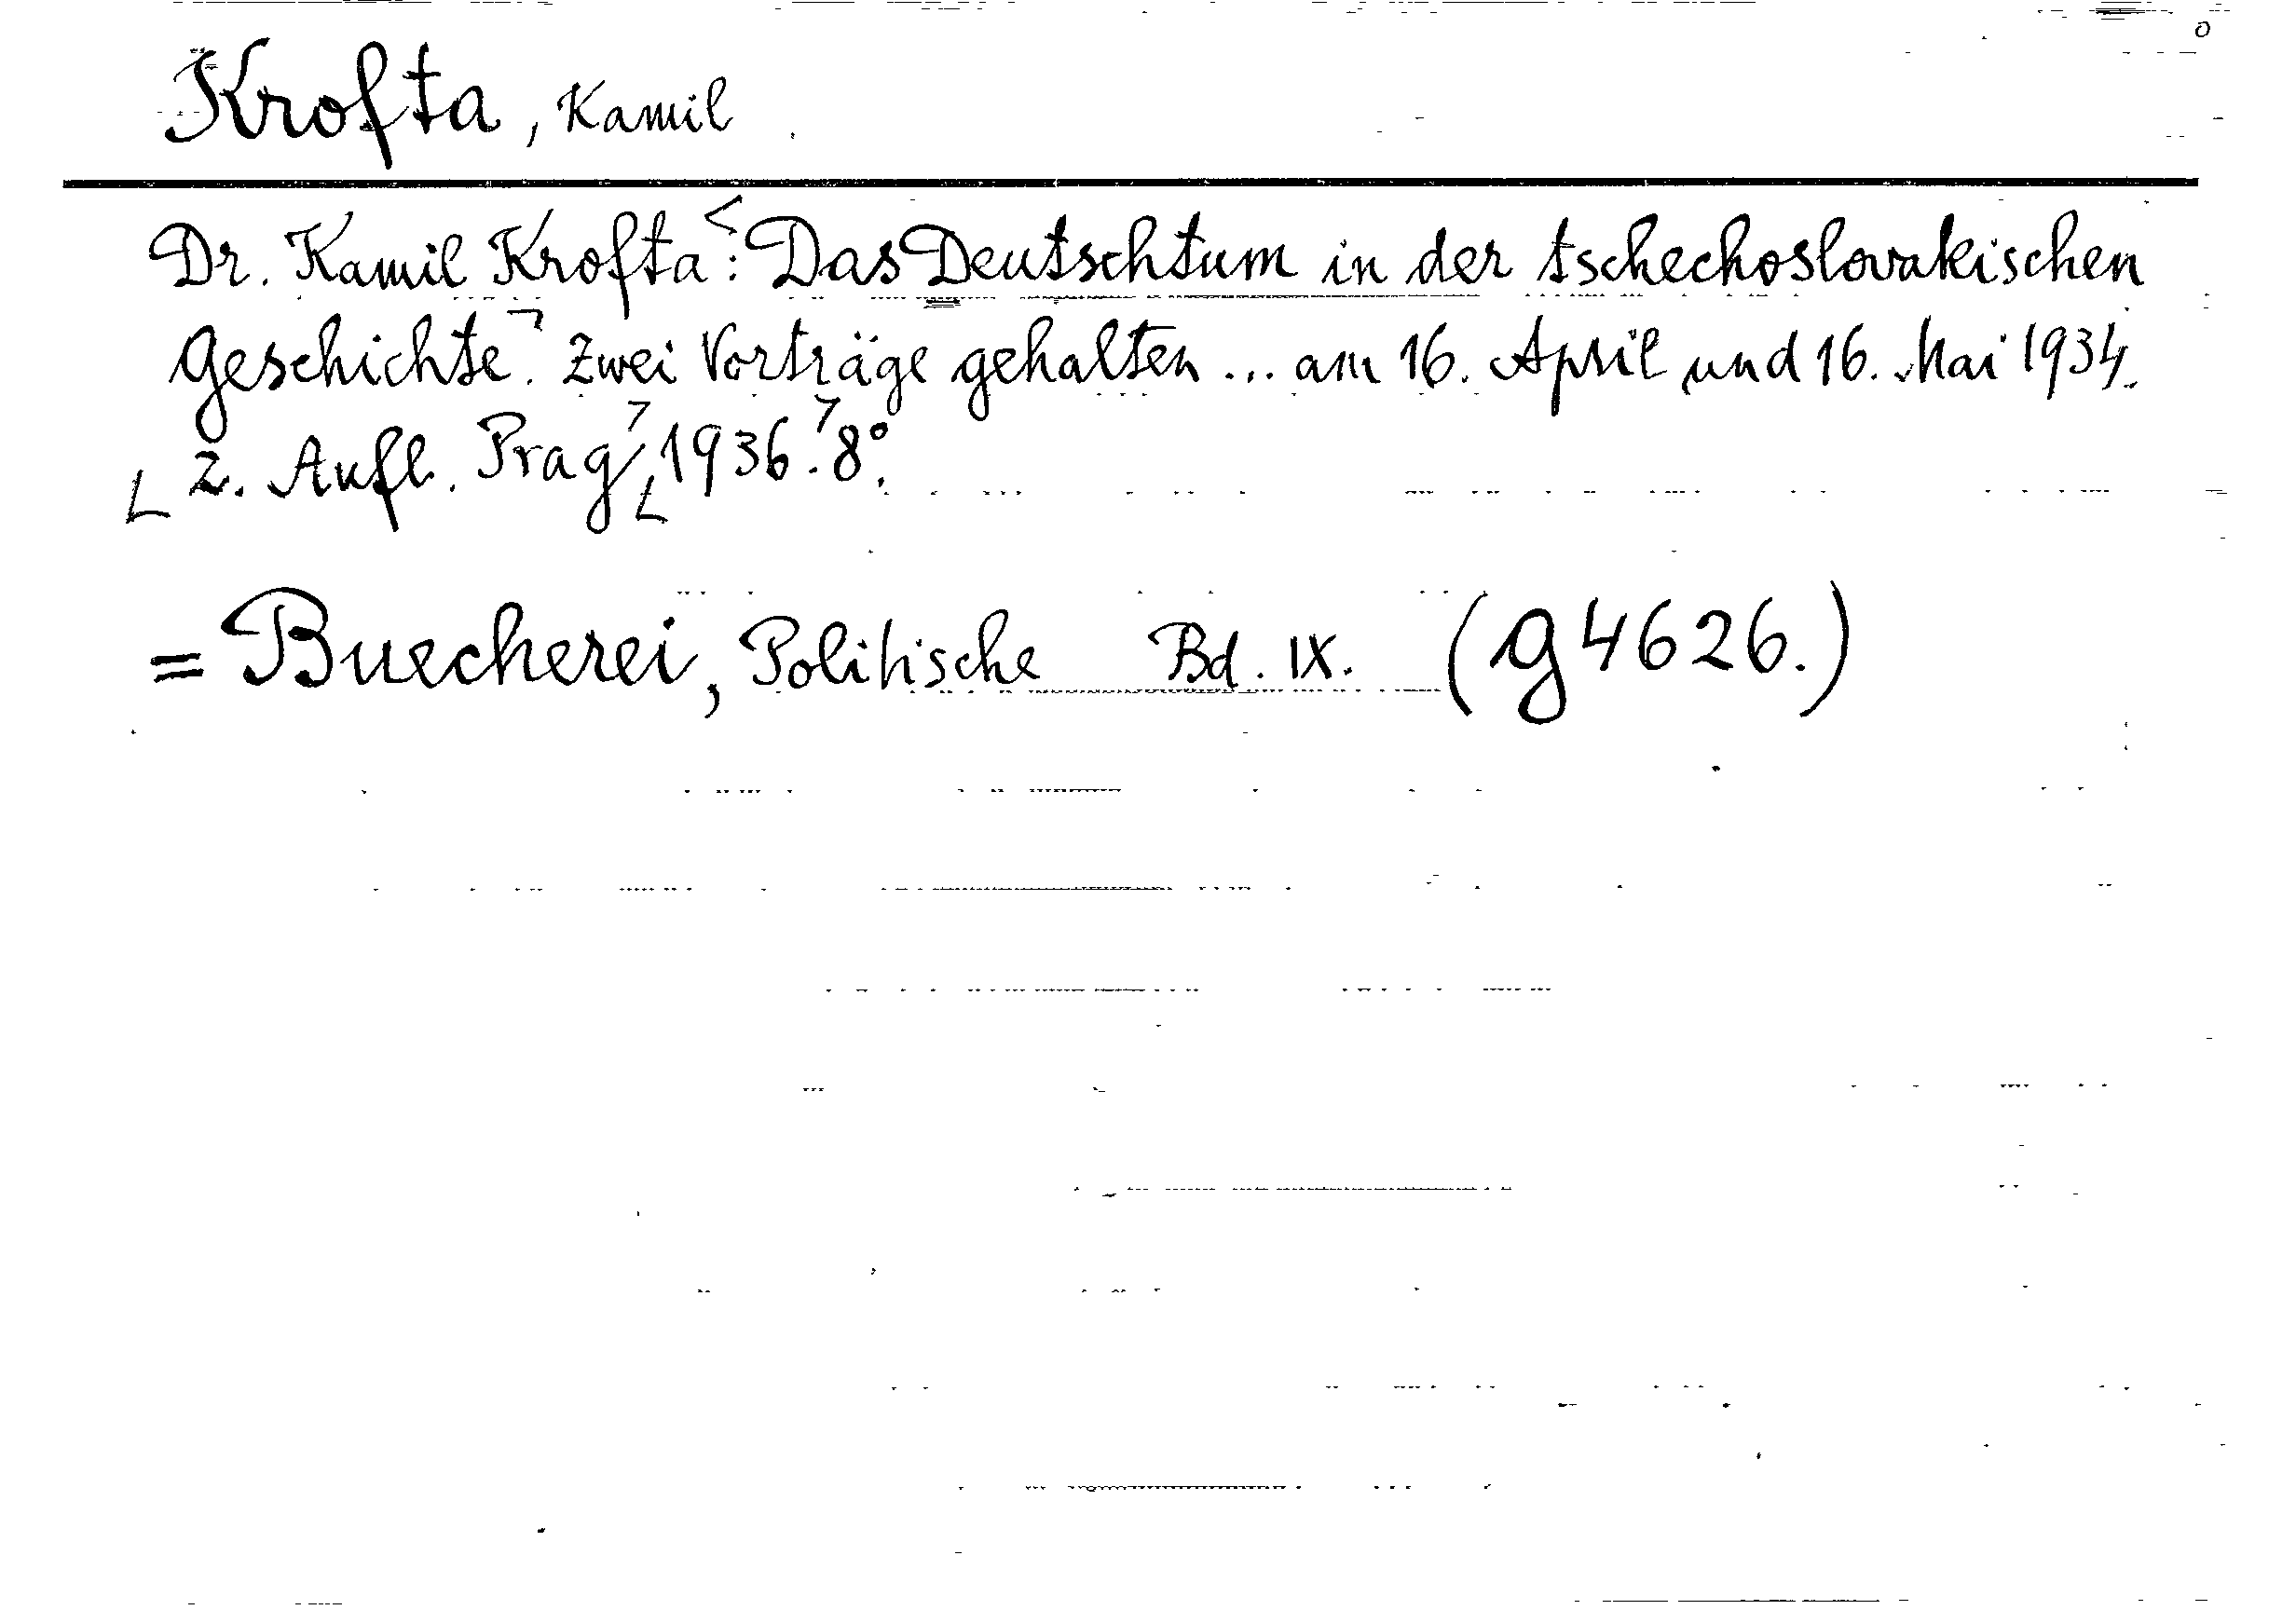 Krofta, Kamil
Dr. Kamil Krofta: Das Deutschtum in der tschechoslovakischen
Geschichte. Zwei Vorträge gehalten ... am 16. April und 16. Mai 1934.
2. Aufl. Prag, 1936. 8°.
= Buecherei, Politische Bd. IX. (g 4626.)